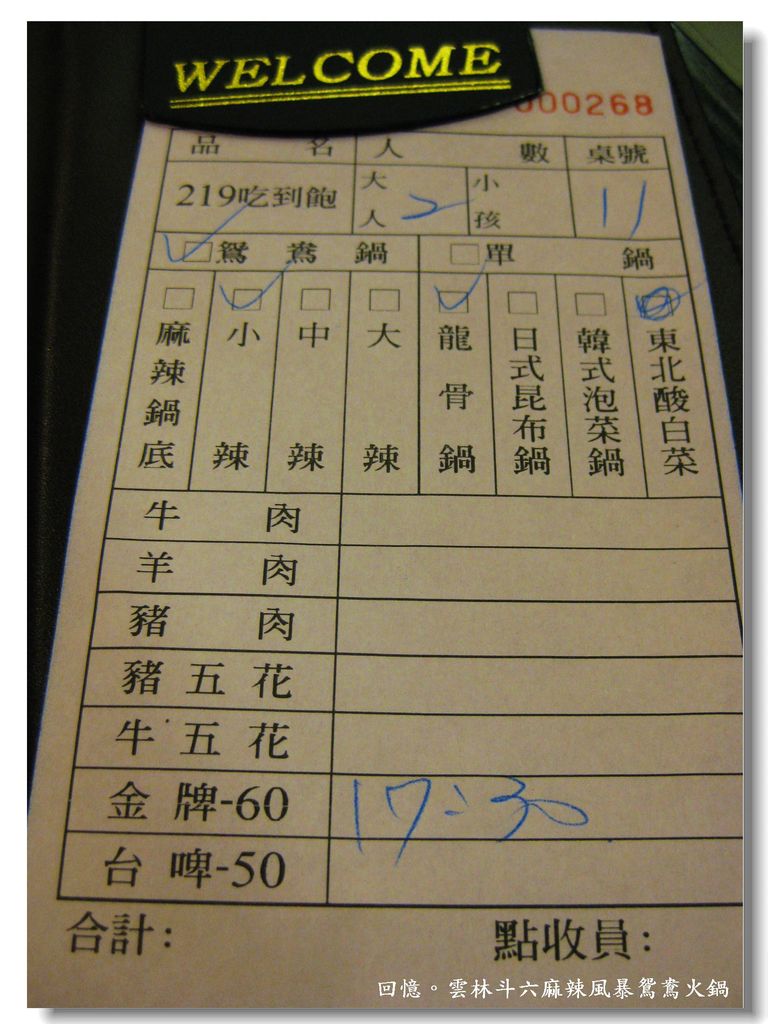 WELCOME
000268
品名 人數 桌號
219吃到飽 大人 2 小孩 11
鴛鴦鍋 單鍋
麻辣鍋底 小辣 中辣 大辣 龍骨鍋 日式昆布鍋 韓式泡菜鍋 東北酸白菜
牛肉
羊肉
豬肉
豬五花
牛五花
金牌-60 17:30
台啤-50
合計: 點收員:
回憶。雲林斗六麻辣風暴鴛鴦火鍋